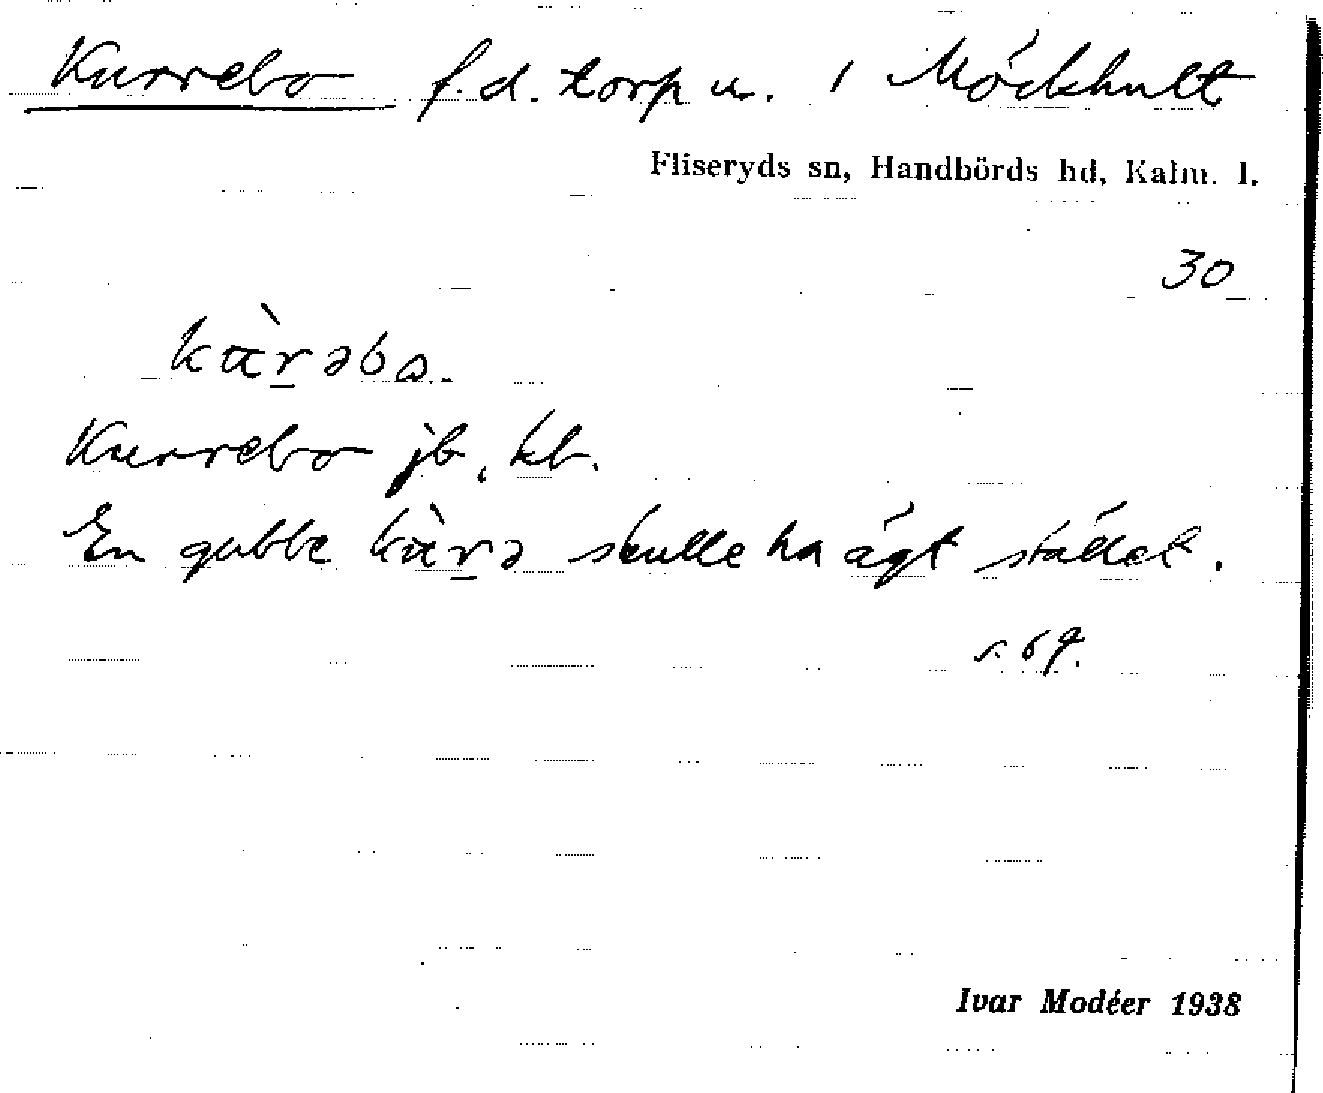 Kurrebo f.d. torp u. 1 Möckhult
Fliseryds sn, Handbörds hd, Kalm. l.
30
kɑ̀r̠əbo.
Kurrebo jb, kb.
En gubbe kɑ̀r̠ə skulle ha ägt stället.
s. 69.
Ivar Modéer 1938